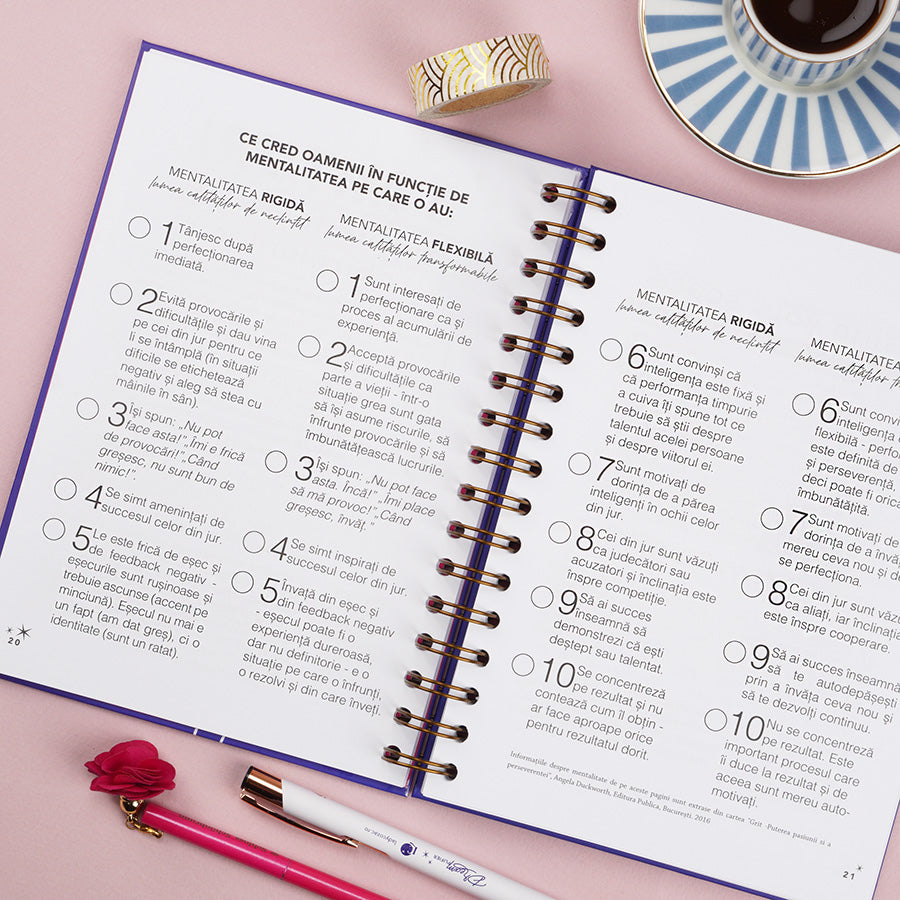 CE CRED OAMENII ÎN FUNCȚIE DE
MENTALITATEA PE CARE O AU:
MENTALITATEA RIGIDĂ
lumea calităților de neclintit
1 Tânjesc după
perfecționarea
imediată.
2 Evită provocările și
dificultățile și dau vina
pe cei din jur pentru ce
li se întâmplă (în situații
dificile se etichetează
negativ și aleg să stea cu
mâinile în sân).
3 Își spun: „Nu pot
face asta!” „Îmi e frică
de provocări!” „Când
greșesc, nu sunt bun de
nimic!”
4 Se simt amenințați de
succesul celor din jur.
5 Le este frică de eșec și
de feedback negativ -
eșecurile sunt rușinoase și
trebuie ascunse (accent pe
minciună). Eșecul nu mai e
un fapt (am dat greș), ci o
identitate (sunt un ratat).
MENTALITATEA FLEXIBILĂ
lumea calităților transformabile
1 Sunt interesați de
perfecționare ca și
proces al acumulării de
experiență.
2 Acceptă provocările
și dificultățile ca
parte a vieții - într-o
situație grea sunt gata
să își asume riscurile, să
înfrunte provocările și să
îmbunătățească lucrurile.
3 Își spun: „Nu pot face
asta. Încă!” „Îmi place
să mă provoc!” „Când
greșesc, învăț.”
4 Se simt inspirați de
succesul celor din jur.
5 Învață din eșec și
din feedback negativ
- eșecul poate fi o
experiență dureroasă,
dar nu definitorie - e o
situație pe care o înfrunți,
o rezolvi și din care înveți.
20
MENTALITATEA RIGIDĂ
lumea calităților de neclintit
6 Sunt convinși că
inteligența este fixă și
că performanța timpurie
a cuiva îți spune tot ce
trebuie să știi despre
talentul acelei persoane
și despre viitorul ei.
7 Sunt motivați de
dorința de a părea
inteligenți în ochii celor
din jur.
8 Cei din jur sunt văzuți
ca judecători sau
acuzatori și înclinația este
înspre competiție.
9 Să ai succes
înseamnă să
demonstrezi că ești
deștept sau talentat.
10 Se concentrează
pe rezultat și nu
contează cum îl obțin -
ar face aproape orice
pentru rezultatul dorit.
MENTALITATEA
lumea calităților
6 Sunt convinși
inteligența e
flexibilă - perfor
este definită de
și perseverență,
deci poate fi oric
îmbunătățită.
7 Sunt motivați de
dorința de a învă
mereu ceva nou și d
se perfecționa.
8 Cei din jur sunt văzu
ca aliați, iar înclinația
este înspre cooperare.
9 Să ai succes înseamnă
să te autodepășești
prin a învăța ceva nou și
să te dezvolți continuu.
10 Nu se concentrează
pe rezultat. Este
important procesul care
îi duce la rezultat și de
aceea sunt mereu auto-
motivați.
Informațiile despre mentalitate de pe aceste pagini sunt extrase din cartea "Grit -Puterea pasiunii si a
perseverentei", Angela Duckworth, Editura Publica, București. 2016
21
ladycozac.ro
Dream